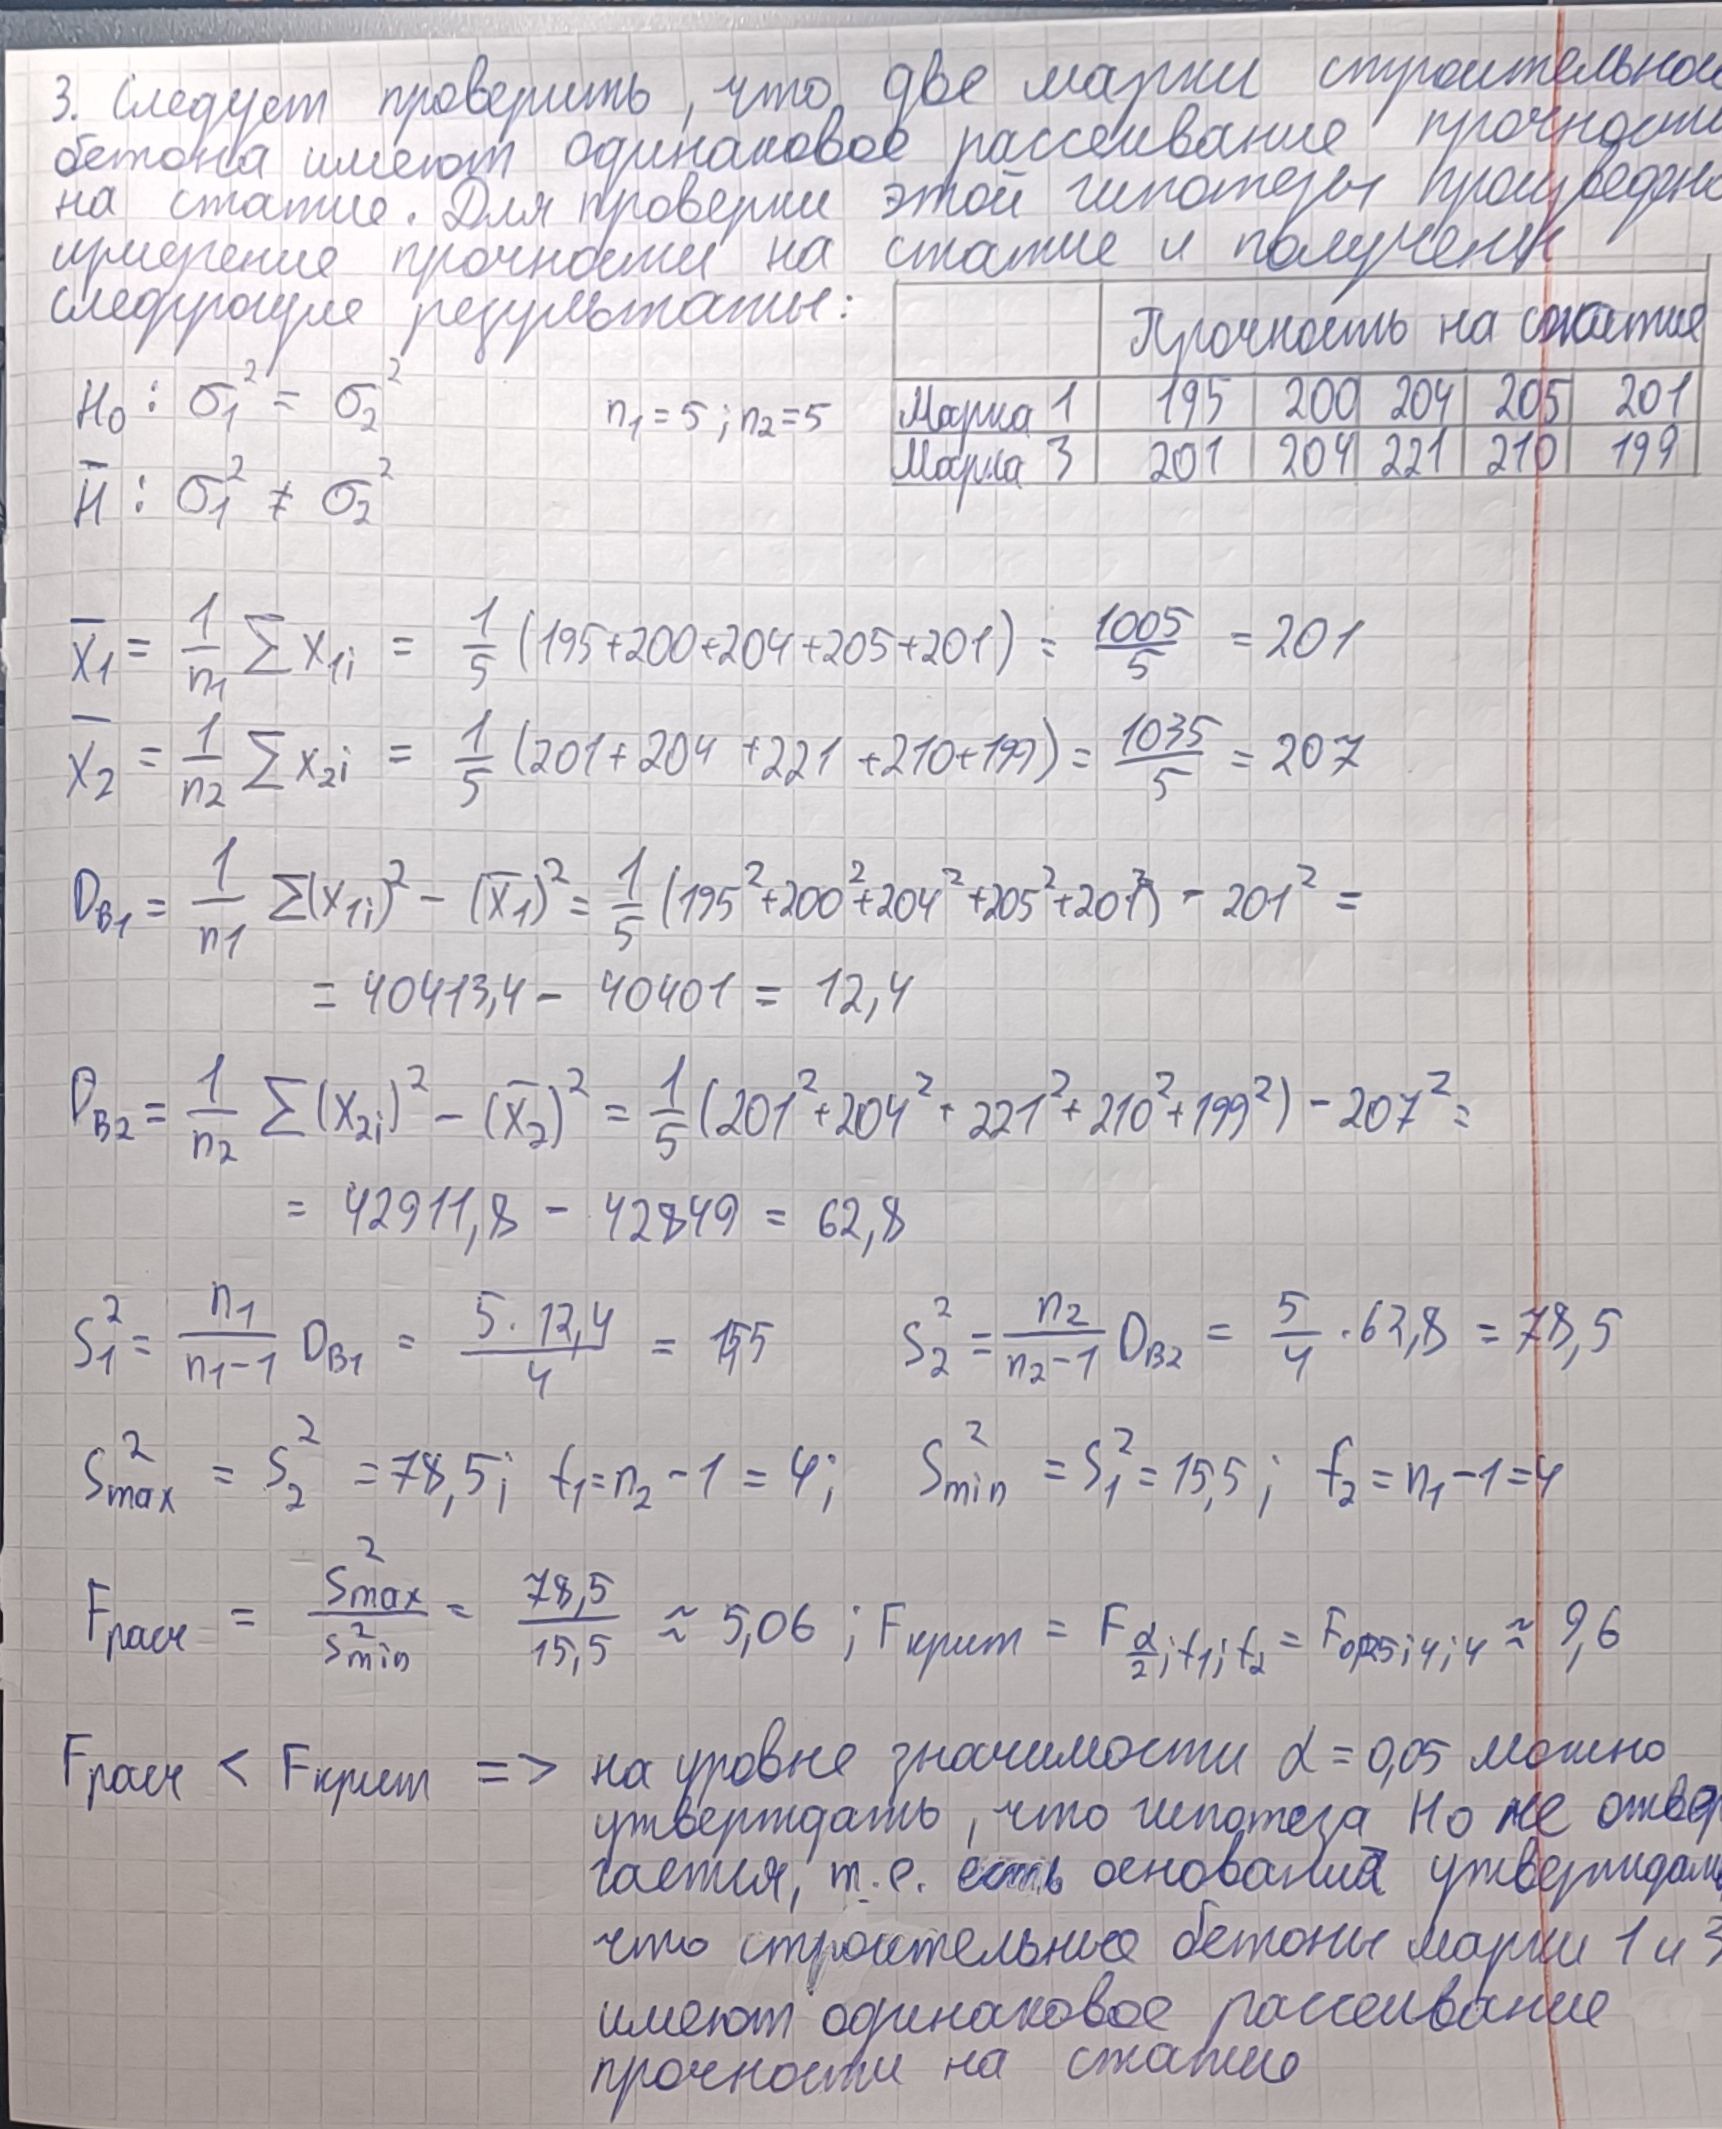 3. Следует проверить, что две марки строительной
бетона имеют одинаковое рассеивание прочности
на сжатие. Для проверки этой гипотезы произведено
измерение прочности на сжатие и получены
следующие результаты:
Прочность на сжатие
Марка 1 195 200 204 205 201
Марка 3 201 204 221 210 199
H₀ : σ₁² = σ₂² n₁ = 5 ; n₂ = 5
H̅ : σ₁² ≠ σ₂²
x̅₁ = 1/n₁ ∑ x₁ᵢ = 1/5 (195+200+204+205+201) = 1005/5 = 201
x̅₂ = 1/n₂ ∑ x₂ᵢ = 1/5 (201+204+221+210+199) = 1035/5 = 207
D_B1 = 1/n₁ ∑(x₁ᵢ)² - (x̅₁)² = 1/5 (195²+200²+204²+205²+201²) - 201² =
= 40413,4 - 40401 = 12,4
D_B2 = 1/n₂ ∑(x₂ᵢ)² - (x̅₂)² = 1/5 (201²+204²+221²+210²+199²) - 207² =
= 42911,8 - 42849 = 62,8
S₁² = n₁/(n₁-1) D_B1 = 5·12,4/4 = 15,5 S₂² = n₂/(n₂-1) D_B2 = 5/4 · 62,8 = 78,5
S²max = S₂² = 78,5; f₁ = n₂ - 1 = 4; S²min = S₁² = 15,5; f₂ = n₁ - 1 = 4
Fрасч = S²max/S²min = 78,5/15,5 ≈ 5,06 ; Fкрит = F α/2; f₁; f₂ = F 0,025; 4; 4 ≈ 9,6
Fрасч < Fкрит => на уровне значимости α = 0,05 можно
утверждать, что гипотеза H₀ не отвер
гается, т.е. есть основания утверждать,
что строительные бетоны марки 1 и 3
имеют одинаковое рассеивание
прочности на сжатие